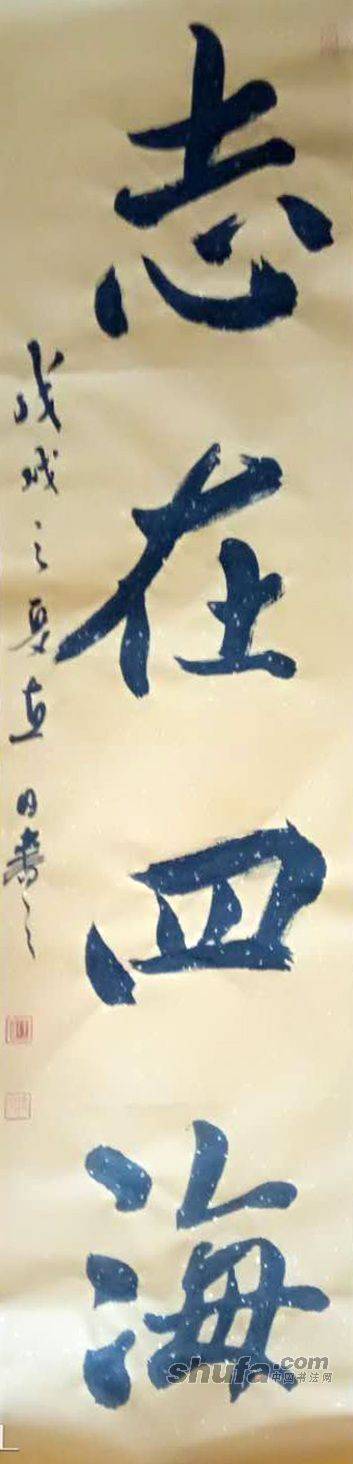 志在四海
戊戌之夏直日書之
shufa.com
中国书法网